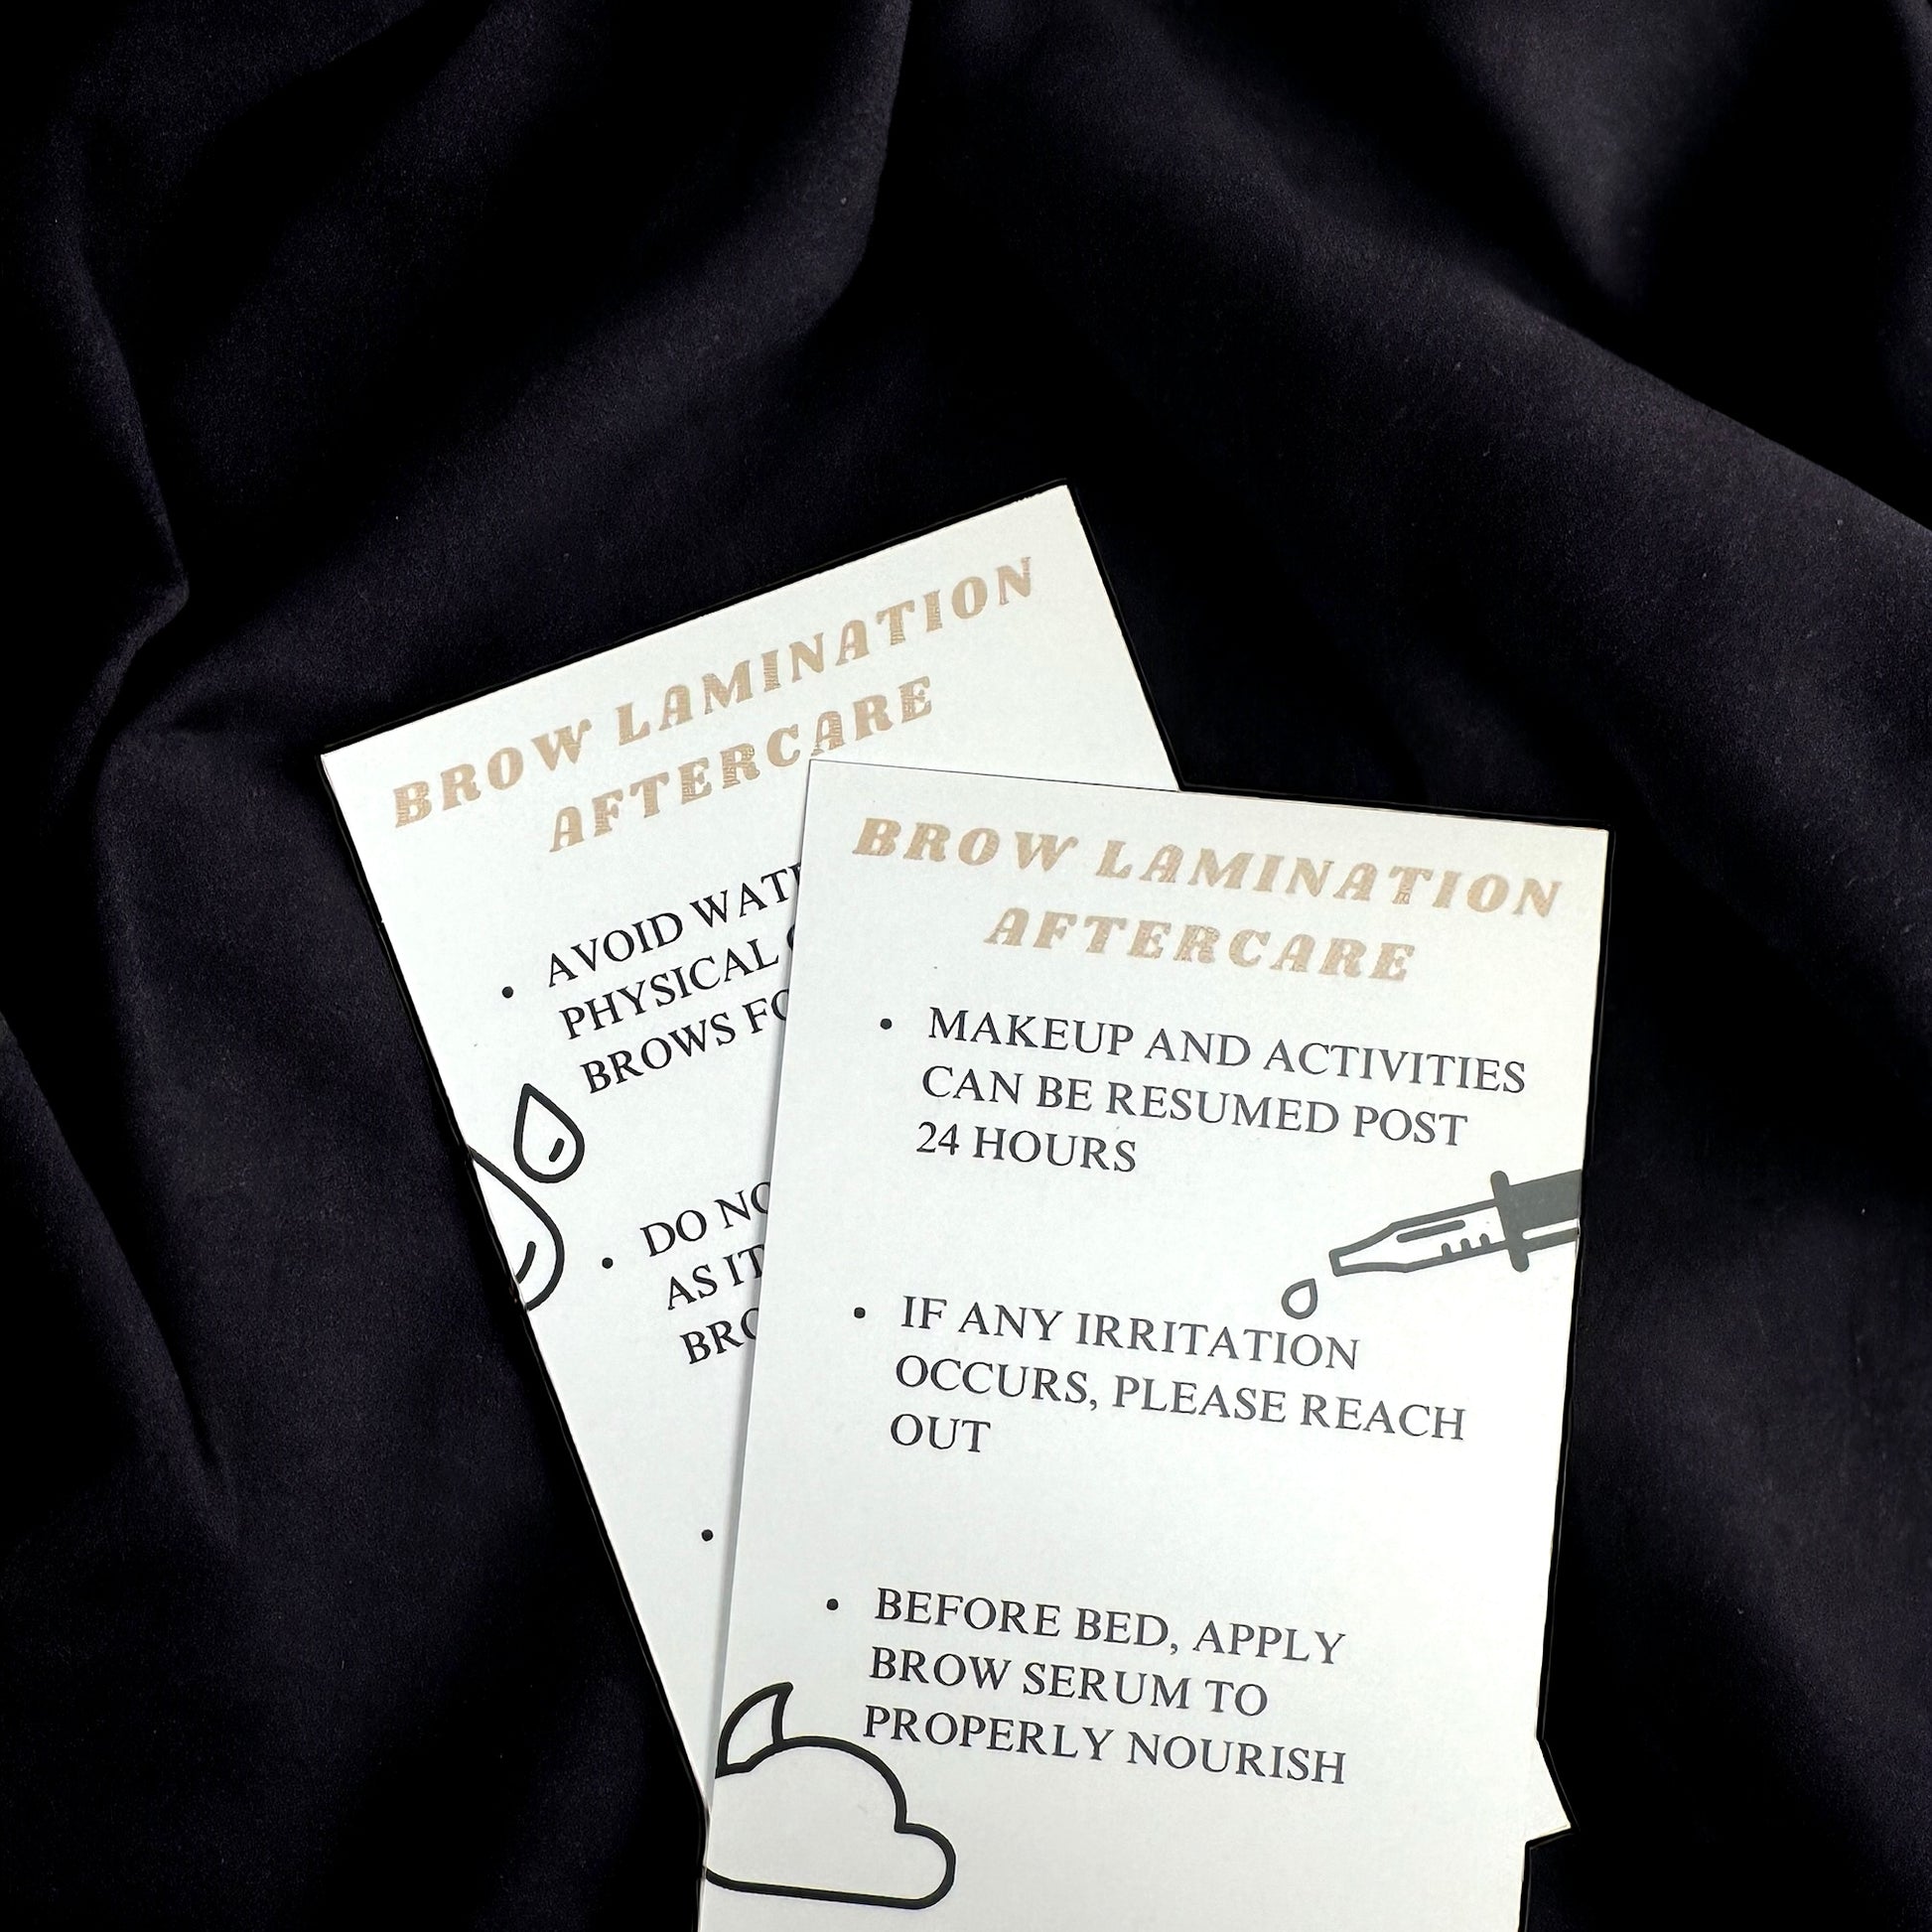 BROW LAMINATION
AFTERCARE
AVOID
PHYSICAL
BROWS
DO
AS
BROW LAMINATION
AFTERCARE
• MAKEUP AND ACTIVITIES
CAN BE RESUMED POST
24 HOURS
• IF ANY IRRITATION
OCCURS, PLEASE REACH
OUT
• BEFORE BED, APPLY
BROW SERUM TO
PROPERLY NOURISH